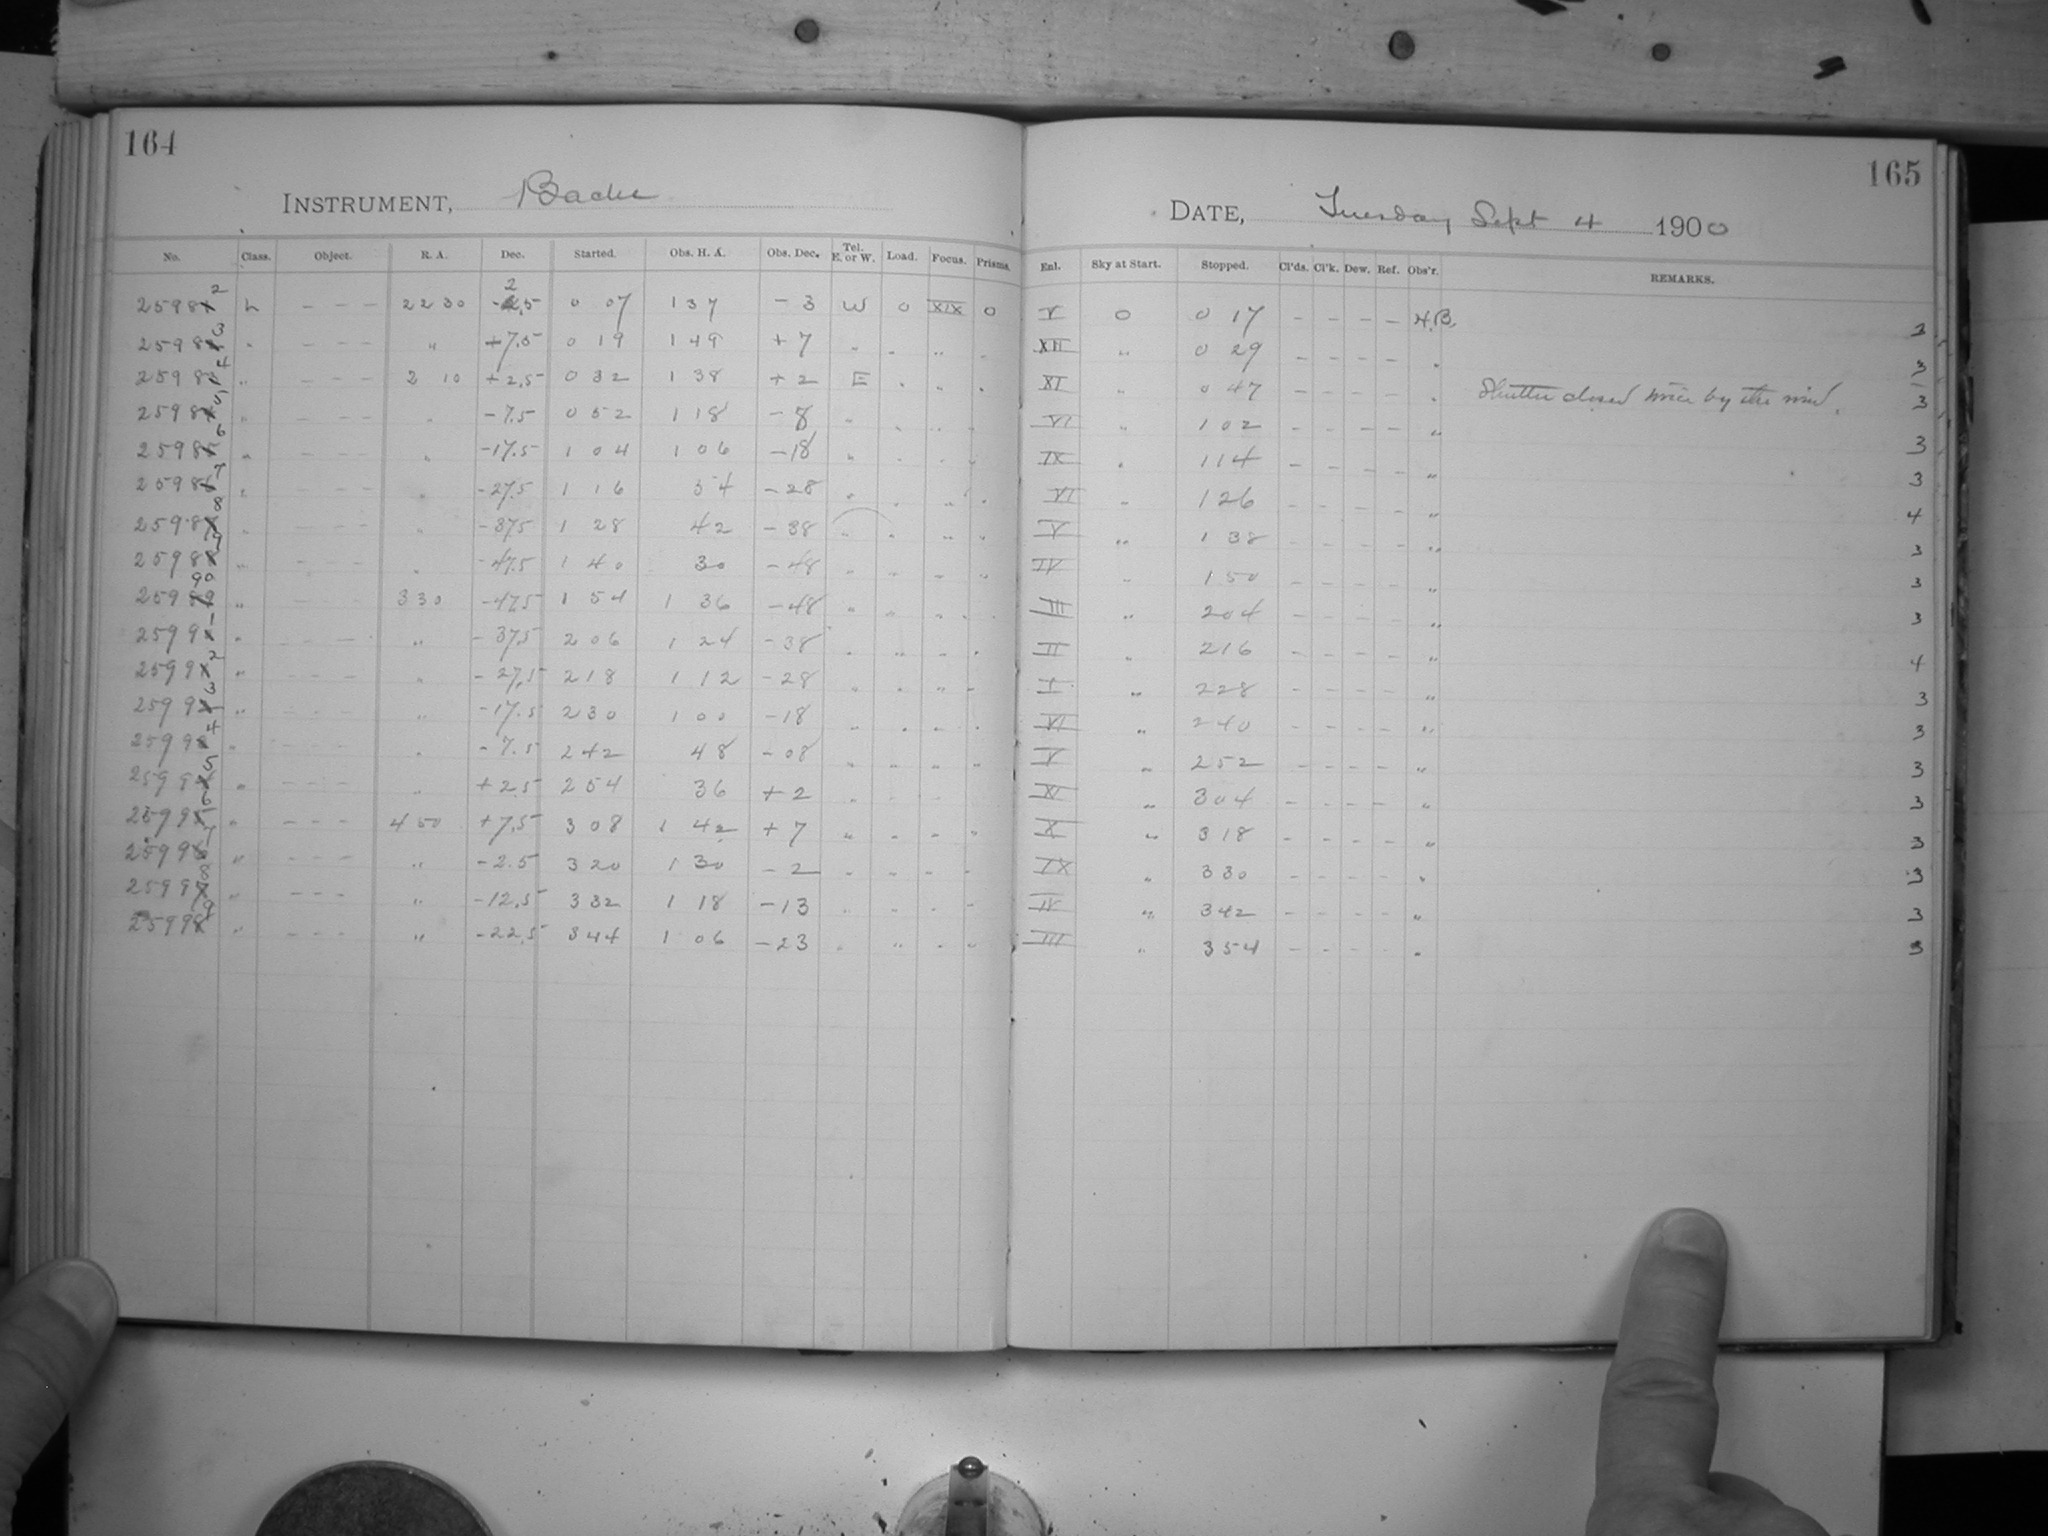 164
INSTRUMENT, Bache
No. Class. Object. R. A. Dec. Started. Obs. H. A. Obs. Dec. Tel. E. or W. Load. Focus. Prisms.
25982 L - - - 22 30 -2.5 0 07 1 37 - 3 W 0 XIX 0
25983 " - - - " +7.5 0 19 1 49 + 7 " " " "
25984 " - - - 2 10 +2.5 0 32 1 38 + 2 E " " "
25985 " - - - " -7.5 0 52 1 18 - 8 " " " "
25986 " - - - " -17.5 1 04 1 06 -18 " " " "
25987 " - - - " -27.5 1 16 54 -28 " " " "
25988 " - - - " -37.5 1 28 42 -38 " " " "
25989 " - - - " -47.5 1 40 30 -48 " " " "
25990 " - - - 3 30 -47.5 1 54 1 36 -48 " " " "
25991 " - - - " -37.5 2 06 1 24 -38 " " " "
25992 " - - - " -27.5 2 18 1 12 -28 " " " "
25993 " - - - " -17.5 2 30 1 00 -18 " " " "
25994 " - - - " -7.5 2 42 48 -08 " " " "
25995 " - - - " +2.5 2 54 36 + 2 " " " "
25996 " - - - 4 50 +7.5 3 08 1 42 + 7 " " " "
25997 " - - - " -2.5 3 20 1 30 - 2 " " " "
25998 " - - - " -12.5 3 32 1 18 -13 " " " "
25999 " - - - " -22.5 3 44 1 06 -23 " " " "
165
DATE, Tuesday Sept 4 1900
Enl. Sky at Start. Stopped. Cl'ds. Cl'k. Dew. Ref. Obs'r. REMARKS.
V 0 0 17 - - - - H.B. 3
XII " 0 29 - - - - " 3
XI " 0 47 - - - - " Shutter closed twice by the wind. 3
VI " 1 02 - - - - " 3
IX " 1 14 - - - - " 3
VI " 1 26 - - - - " 4
V " 1 38 - - - - " 3
IV " 1 50 - - - - " 3
III " 2 04 - - - - " 3
II " 2 16 - - - - " 4
I " 2 28 - - - - " 3
VI " 2 40 - - - - " 3
V " 2 52 - - - - " 3
XI " 3 04 - - - - " 3
X " 3 18 - - - - " 3
IX " 3 30 - - - - " 3
IV " 3 42 - - - - " 3
III " 3 54 - - - - " 3